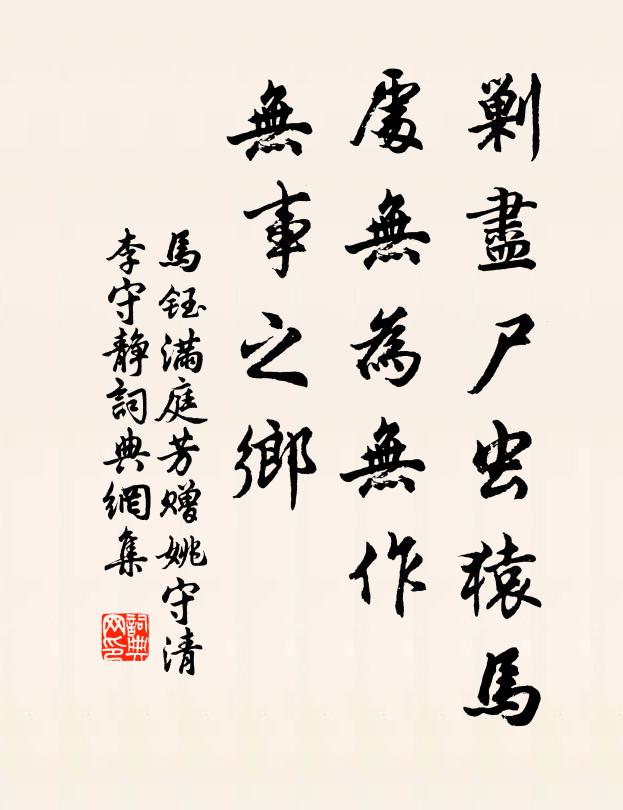 剿盡尸虫猿馬
處無為無作
無事之鄉
馬鈺滿庭芳赠姚守清
李守靜詞典網集
詞典网印